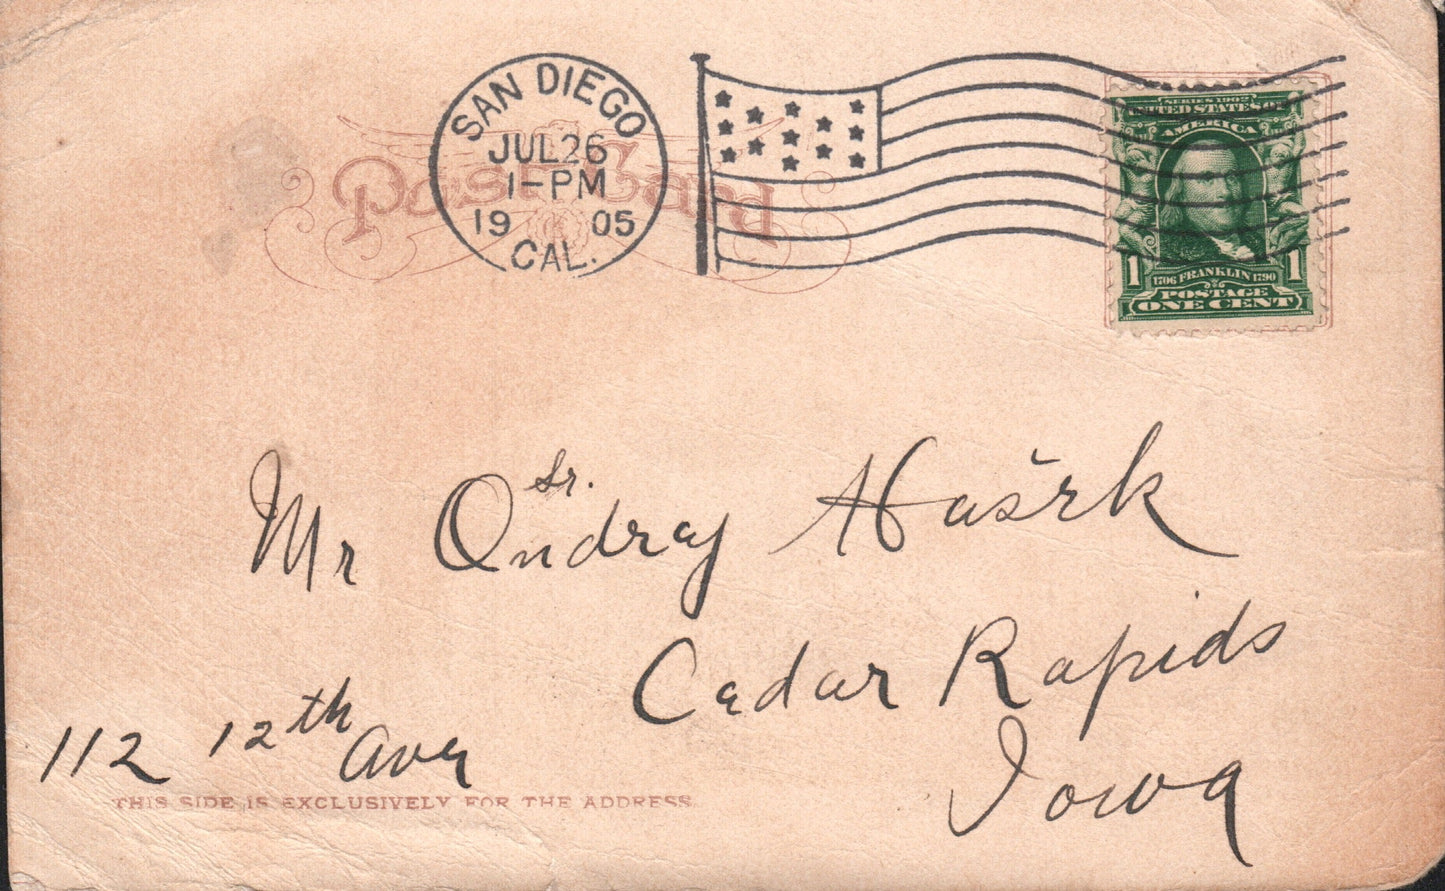 Post Card
SAN DIEGO
JUL 26
1-PM
1905
CAL.
SERIES 1902
UNITED STATES OF
AMERICA
1 1706 FRANKLIN 1790 1
POSTAGE
ONE CENT
Mr Ondrej Sr. Hašrk
Cedar Rapids
Iowa
112 12th Ave
THIS SIDE IS EXCLUSIVELY FOR THE ADDRESS.